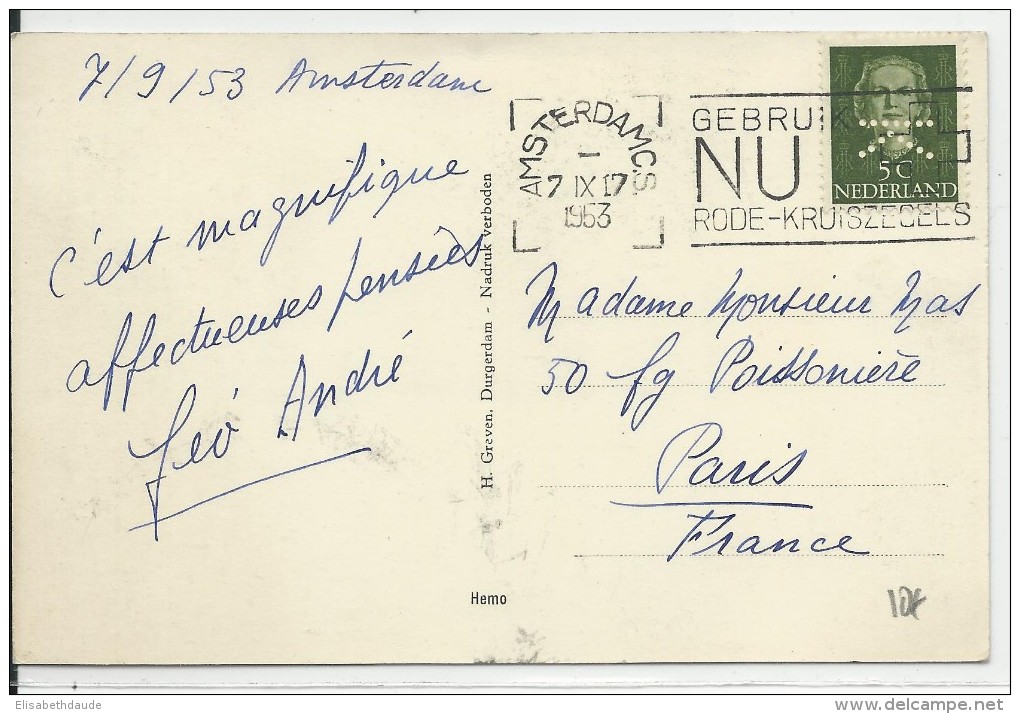 7/9/53 Amsterdam
c'est magnifique
affectueuses pensées
Géo André
H. Greven, Durgerdam - Nadruk verboden
Hemo
AMSTERDAM C.S
7 IX 17
1953
GEBRUIK
NU
RODE-KRUISZEGELS
5C
NEDERLAND
Madame Monsieur Mas
50 fg Poissonière
Paris
France
10€
Elisabethdaude
delcampe.net